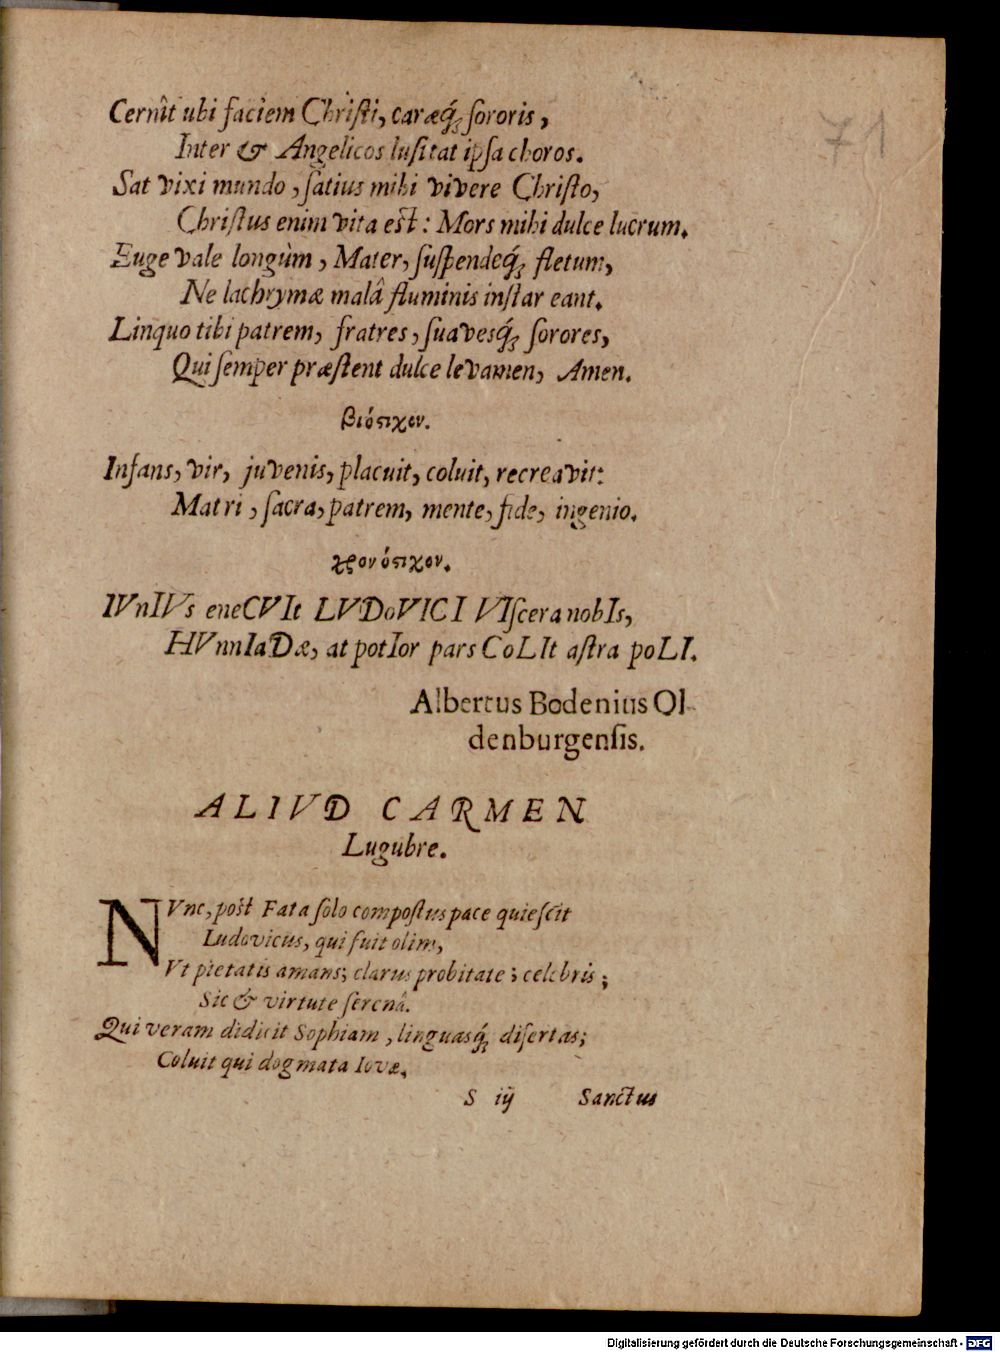 71
Cernit ubi faciem Christi, caræq́; sororis,
Inter & Angelicos lusitat ipsa choros.
Sat vixi mundo, satius mihi vivere Christo,
Christus enim vita est: Mors mihi dulce lucrum.
Euge vale longùm, Mater, suspendeq́; fletum,
Ne lachrymæ malâ fluminis instar eant.
Linquo tibi patrem, fratres, suavesq́; sorores,
Qui semper præstent dulce levamen, Amen.
βιόστιχον.
Infans, vir, juvenis, placuit, coluit, recreavit:
Matri, sacra, patrem, mente, fide, ingenio.
χρονόστιχον.
IVnIVs eneCVIt LVDoVICI VIscera nobIs,
HVnnIaDæ, at potIor pars CoLIt astra poLI.
Albertus Bodenius Ol-
denburgensis.
ALIVD CARMEN
Lugubre.
NVnc, post Fata solo compostus pace quiescit
Ludovicus, qui fuit olim,
Vt pietatis amans; clarus probitate; celebris;
Sic & virtute serenâ.
Qui veram didicit Sophiam, linguasq́; disertas;
Coluit qui dogmata Iovæ.
S iij Sanctus
Digitalisierung gefördert durch die Deutsche Forschungsgemeinschaft - DFG